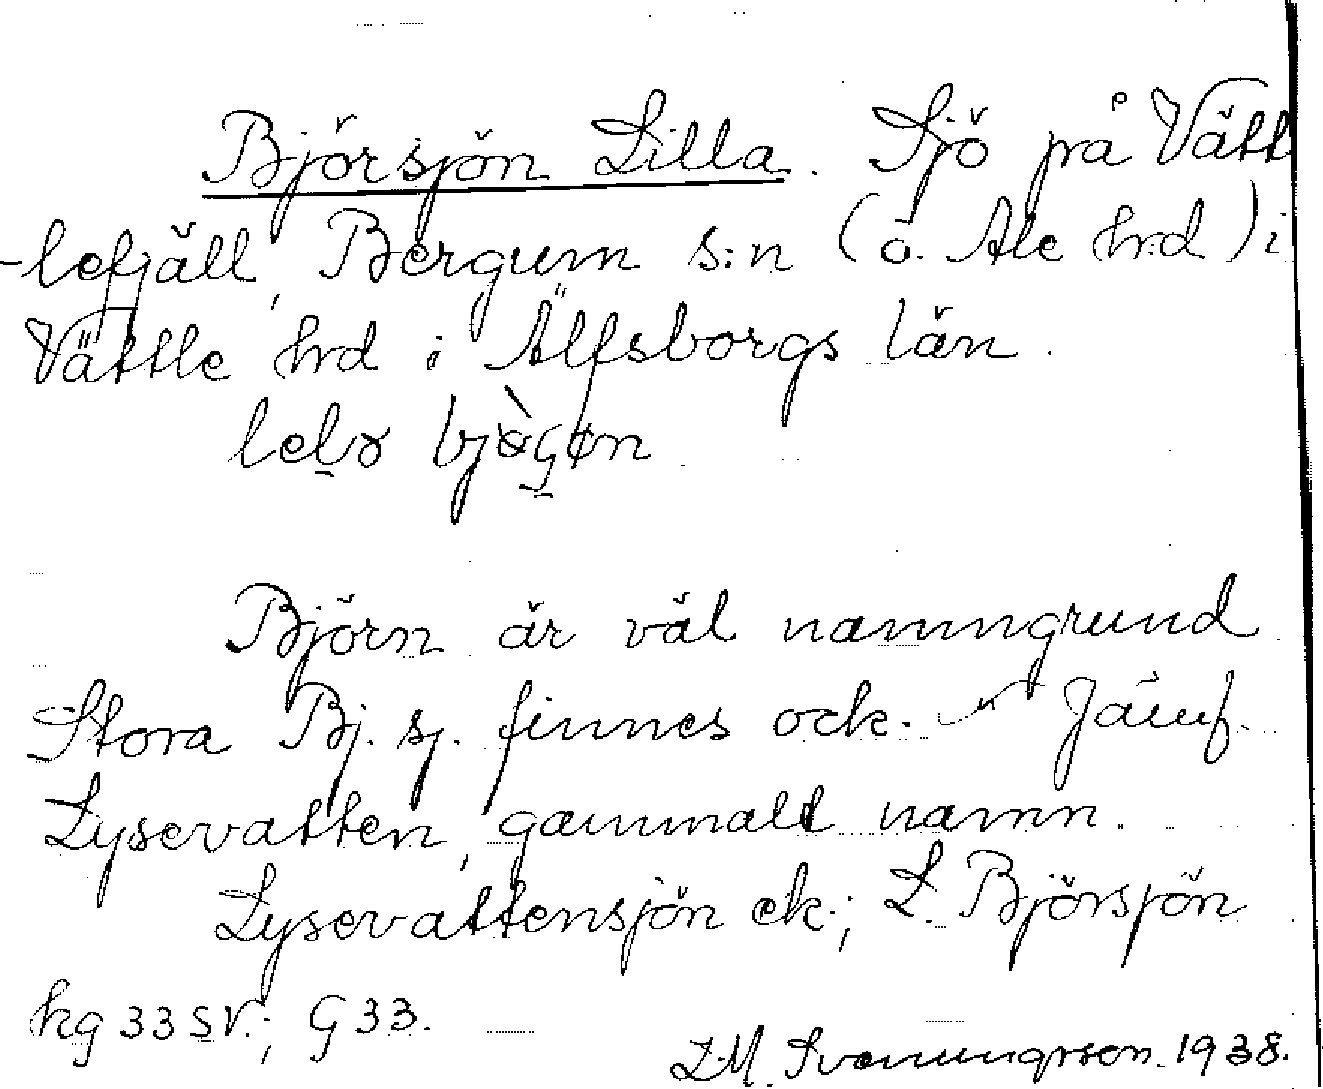 Björsjön Lilla. Sjö på Vätt
-lefjäll, Bergum s:n (o. Ale hrd) i
Vättle hrd i Älfsborgs län.
Björn är väl namngrund
Stora Bj. sj. finnes ock. Jämf.
Lysevatten, gammalt namn.
Lysevattensjön ek.; L. Björsjön
kg 33 SV.; G 33.
1938.